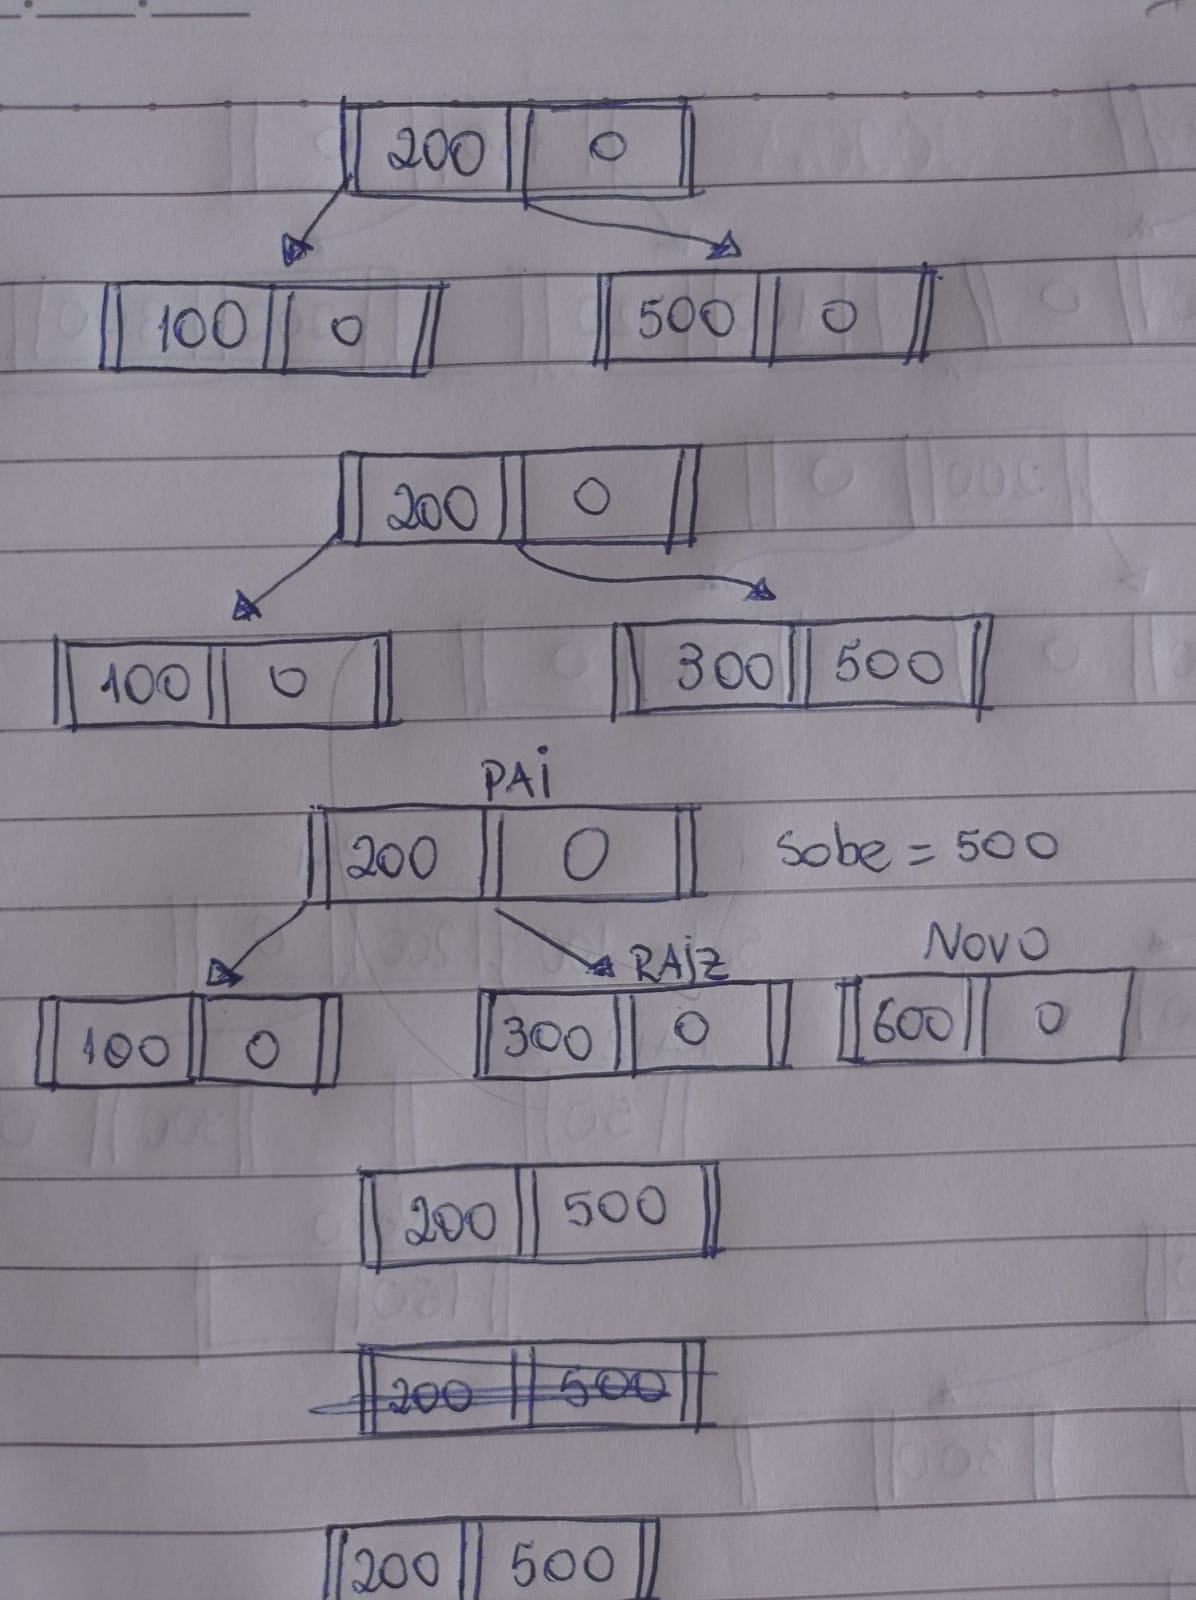 200 0
100 0 500 0
200 0
100 0 300 500
PAi
200 0 Sobe = 500
RAiZ NOVO
100 0 300 0 600 0
200 500
200 500
200 500